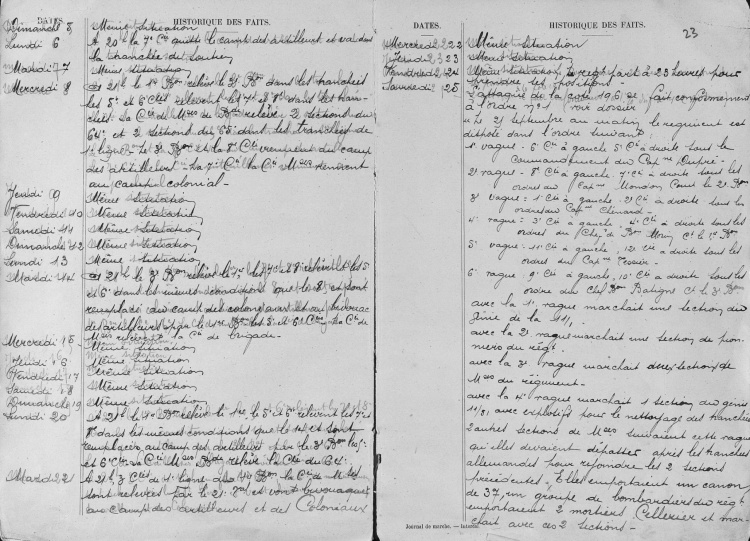 DATES. HISTORIQUE DES FAITS.
Dimanche 5 Même situation
Lundi 6 A 20h la 7e Cie quitte le camp des artilleurs et va dans
la tranchée de soutien
Mardi 7 Même situation
Mercredi 8 21h le 1er Bon relève le 3e Bon dans les tranchées
les 5e et 6 Cies relèvent les 7e et 8e dans les tran-
chées La Cie de Mses de relève 2 sections du
64e et 2 sections du 65e dans les tranchées de
1e ligne. Le 3e Bon et la 8e Cie viennent du camp
des artilleurs - La 7e Cie la Cie Mses viennent
au camp colonial -
Jeudi 9 Même situation
Vendredi 10 Même situation
Samedi 11 Même situation
Dimanche 12 Même situation
Lundi 13 Même situation
Mardi 14 21h le 3e Bon relève le 1er les 7e et 8e relèvent les 5
et 6e dans les mêmes conditions que le 8 et sont
remplacés au camp des coloniaux et au bivouac
des artilleurs par le 1er Bon les 5 et 6 Cies La Cie de
Mses relève la Cie de brigade.
Mercredi 15 Même situation
Même situation
Vendredi 17 Même situation
Samedi 18 Même situation
Dimanche 19 Même situation
Lundi 20 A 21h le 1er Bon relève le les 5e et 6e relèvent les 7e et
8e dans les mêmes conditions que le 14 et sont
remplacés au camp des artilleurs par le 3e Bon les 5e
et 6 Cies La Cie Mses relève la Cie du 64e.
A 21h, 3 Cies de 1e ligne du Bon la Cie de Mses
sont relevées par le 21e et vont bivouaquer
au camp des artilleurs et des Coloniaux
DATES. HISTORIQUE DES FAITS.
23
Mercredi 22 Même situation
Jeudi 23 Même situation
Vendredi 24 Même situation, le régt part à 23 heures pour
prendre les positions
Samedi 25 L'attaque de la cote 196 est faite conformément
à l'ordre no voir dossier
Le 25 septembre au matin le régiment est
disposé dans l'ordre suivant:
1e vague - 6e Cie à gauche 5e Cie à droite sous le
Commandement du Capne Dupré.
2e vague - 8e Cie à gauche 7e Cie à droite sous les
ordres du Capne Mondon Comt le 2e Bon
3e vague = 1e Cie à gauche 2e Cie à droite sous les
ordres du Capne Chénard.
4e vague : 3e Cie à gauche 4e Cie à droite sous les
ordres du Chef de Bon Ct le 1er Bon
5e vague = 11e Cie à gauche, 12e Cie à droite sous les
ordres du Capne Tessier.
6e vague, 9e Cie à gauche, 10e Cie à droite sous les
ordres du Chef Bon Batigne Ct le 3e Bon
avec la 1e vague marchait une section du
génie de la 11/1.
avec la 2e vague marchait une section de pion-
niers du régt.
avec la 3e vague marchait deux sections de
Mses du régiment -
avec la 4e vague marchait 1 section du génie
11/51 avec explosifs pour le nettoyage des tranchées
2 autres sections de Mses suivaient cette vague
qu'elles devaient dépasser après les tranchées
allemandes pour rejoindre les 2 sections
précédentes. Elles emportaient un canon
de 37, un groupe de bombardiers du régt
emportaient 2 mortiers Cellerier et mar-
chait avec ces 2 sections -
Journal de marche. — Intercal.